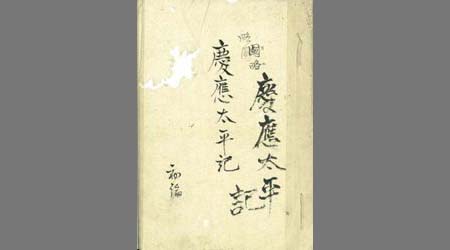 慶應太平記
國略
慶應太平記
初編